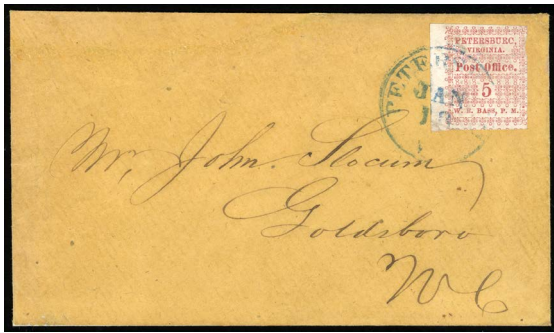 PETERSBURG,
VIRGINIA.
Post Office.
5
W. E. BASS, P. M.
PETER
JAN
Mr. John Slocum
Goldsboro
N C